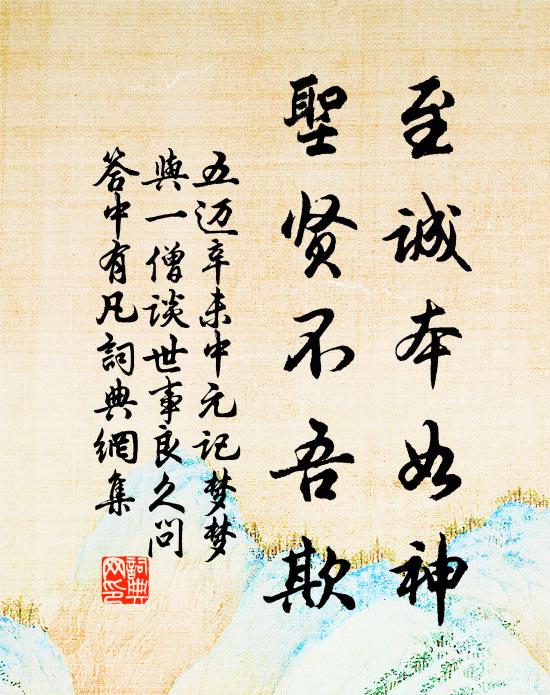 至誠本如神
聖贤不吾欺
五迈辛未中元记梦梦
與一僧谈世事良久问
答中有凡詞典網集
詞典
网印